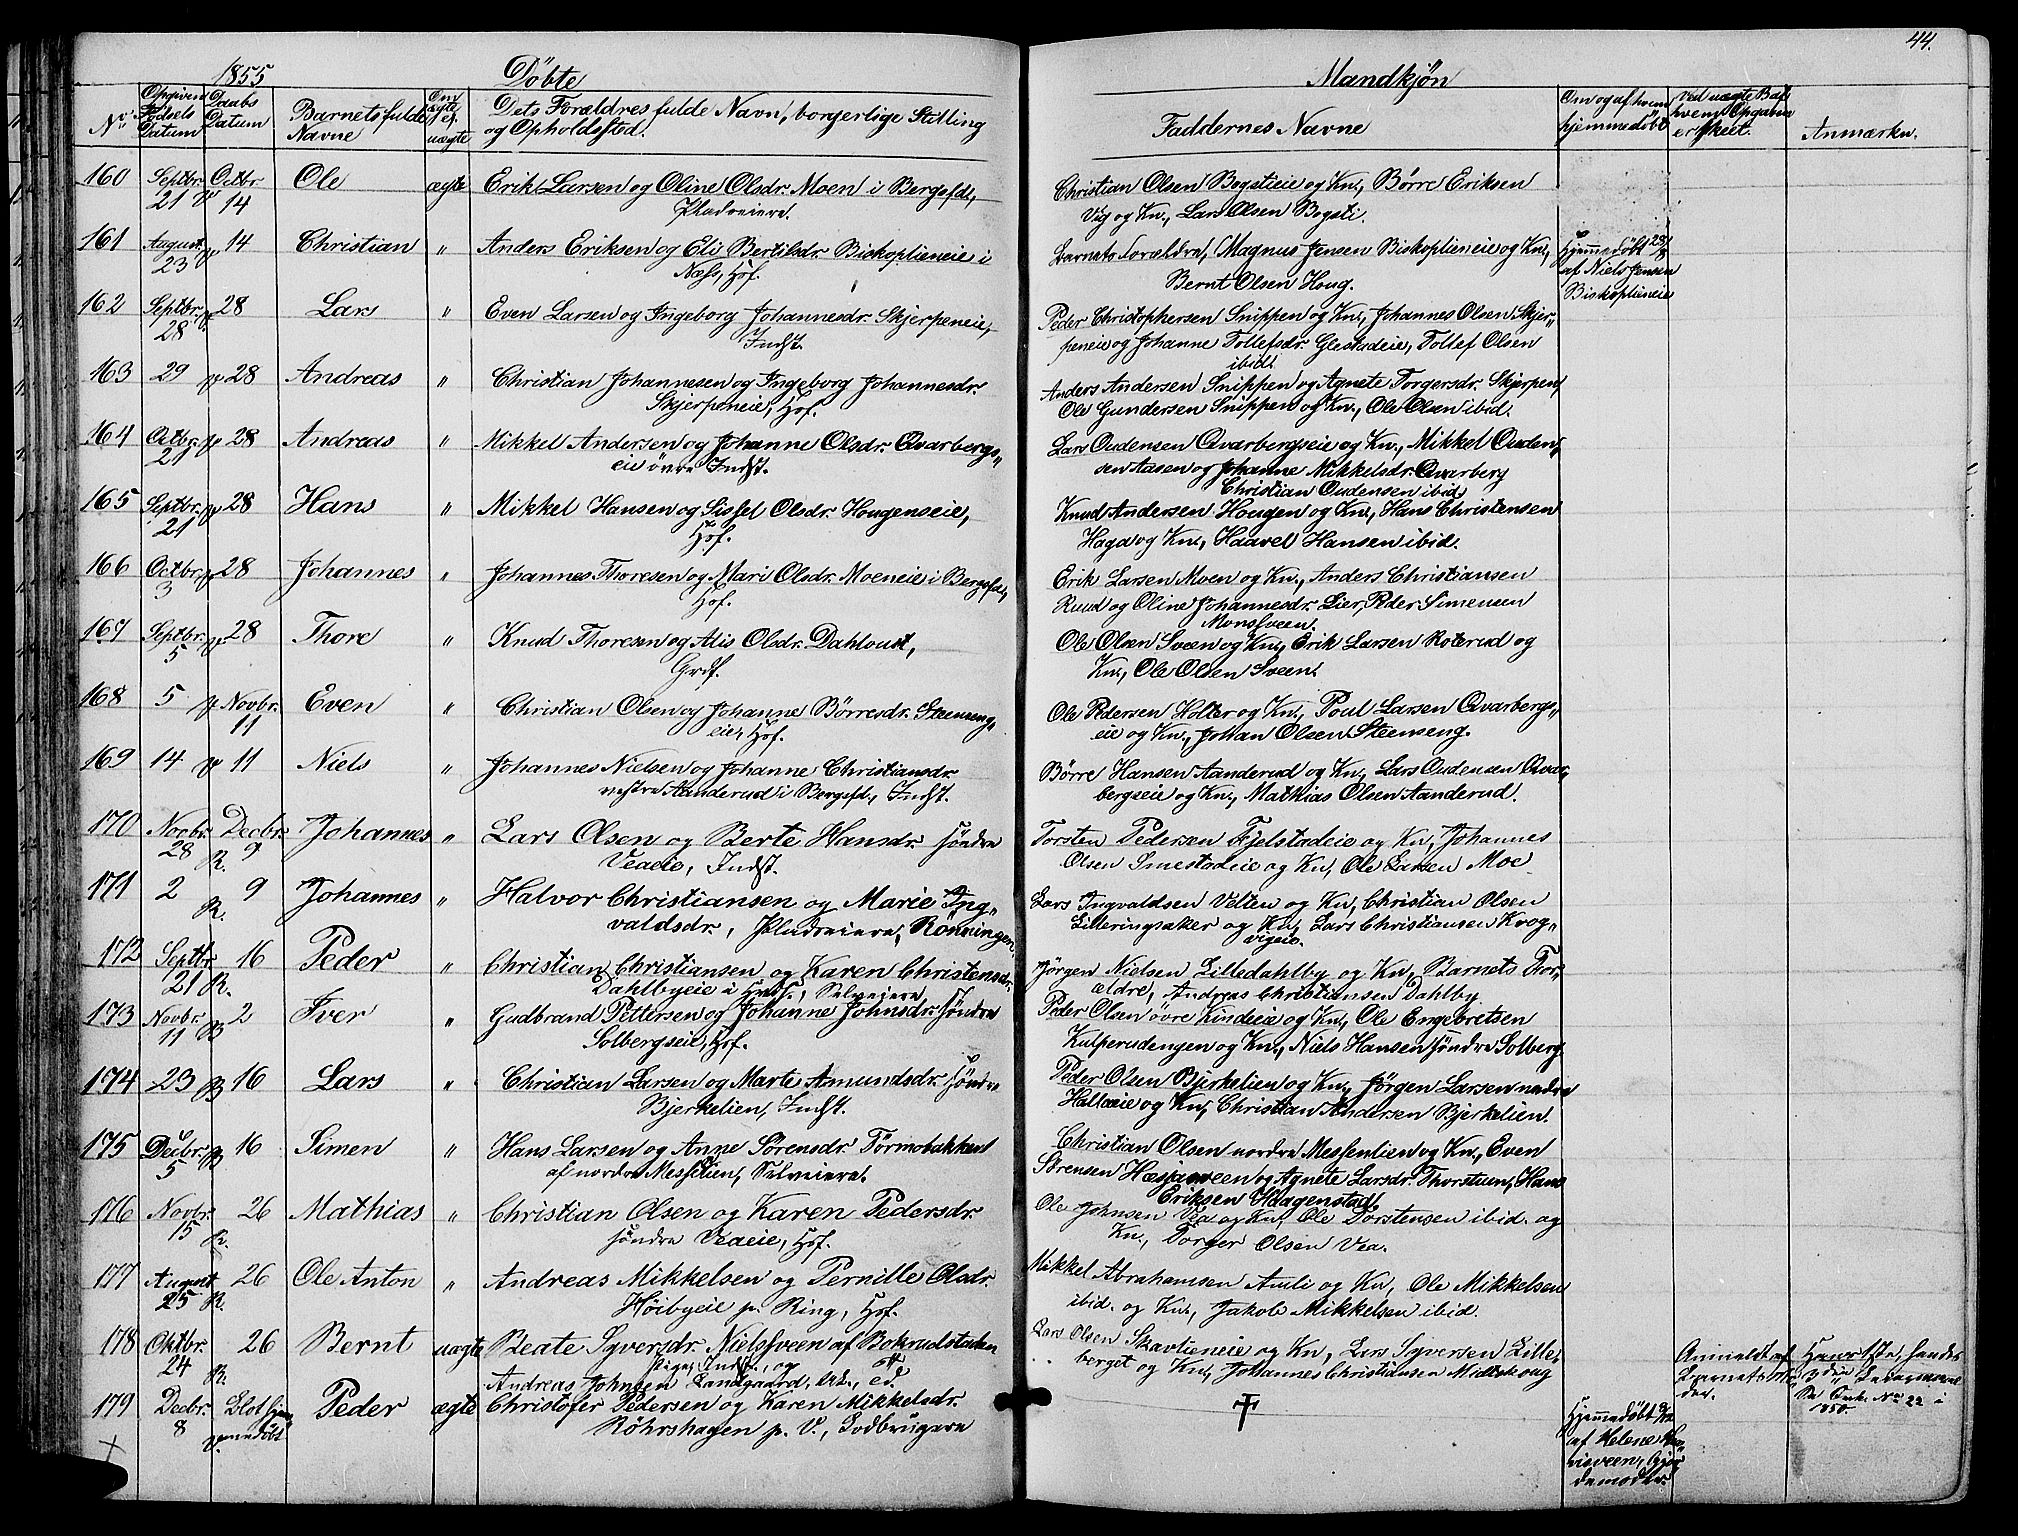 44.
1855
Döbte
Mandkjön
No
Opgiven
Födsels
Datum
Daabs
Datum
Barnets fulde
Navne
Om
ægte
el.
uægte
Dets Forældres fulde Navn, borgerlige Stilling
og Opholdssted.
Faddernes Navne
Om og af hvem
hjemmedöbt
Ved uægte B. af
hvem Opgaven
er skeet.
Anmærkn.
160 Septbr. Octbr. Ole ægte Erik Larsen og Oline Olsdr. Moen i Bergsfd.,
21 V 14 Pladseiere.
Christian Olsen Bogstieie og Kn., Börre Eriksen
Vig og Kn., Lars Olsen Bogsti.
161 August 14 Christian " Anders Eriksen og Eli Bertilsdr. Biskoplieneie i
23 V Næss, Hsf.
Barnets Forældre, Magnus Jensen Biskoplieneie og Kn.,
Bernt Olsen Houg.
Hjemmedöbt 23/8
af Niels Jensen
Biskoplieneie
162 Septbr. 28 Lars " Even Larsen og Ingeborg Johannesdr. Skjerpeneie,
28 Indst.
Peder Christophersen Snippen og Kn., Johannes Olsen Skjer-
peneie og Johanne Tollefsdr. Glestadeie, Tollef Olsen
ibid.
163 29 28 Andreas " Christian Johannesen og Ingeborg Johannesdr.
Skjerpeneie, Hsf.
Anders Andersen Snippen og Agnete Torgersdr. Skjerpen,
Ole Gundersen Snippen og Kn., Ole Olsen ibid.
164 Octbr. 28 Andreas " Mikkel Andersen og Johanne Olsdr. Qvarbergs-
21 eie övre Indst.
Lars Oudensen Qvarbergseie og Kn., Mikkel Ouden-
sen Aasen og Johanne Mikkelsdr. Qvarberg
Christian Oudensen ibid.
165 Septbr. 28 Hans " Mikkel Hansen og Sissel Olsdr. Hougenseie,
21 Hsf.
Knud Andersen Hougen og Kn., Hans Christensen
Haga og Kn., Haavel Hansen ibid.
166 Octbr. 28 Johannes " Johannes Thoresen og Mari Olsdr. Moeneie i Bergsfd.,
3 Hsf.
Erik Larsen Moen og Kn., Anders Christiansen
Ruud og Oline Johannesdr. Lier, Peder Simensen
Monssveen.
167 Septbr. 28 Thore " Knud Thoresen og Alis Olsdr. Dahloust,
5 Grdf.
Ole Olsen Sveen og Kn., Erik Larsen Roterud og
Kn., Ole Olsen Sveen.
168 5 Novbr. Even " Christian Olsen og Johanne Börresdr. Steenseng-
11 eie, Hsf.
Ole Pedersen Holter og Kn., Poul Larsen Qvarbergs-
eie og Kn., Johan Olsen Steenseng.
169 14 11 Niels " Johannes Nielsen og Johanne Christiansdr.
vestre Aanderud i Bergsfd., Indst.
Börre Hansen Aanderud og Kn., Lars Oudensen Qvar-
bergseie og Kn., Mathias Olsen Aanderud.
170 Novbr. Decbr. Johannes " Lars Olsen og Berte Hansdr. söndre
28 R. 9 Veaeie, Indst.
Torsten Pedersen Fjelstadeie og Kn, Johannes
Olsen Smestadeie og Kn, Ole Larsen Moe
171 2 R. 9 Johannes " Halvor Christiansen og Marie Ing-
valdsdr., Pladseiere, Rönningen
Lars Ingvaldsen Velten og Kn, Christian Olsen
Lilleringsaker og Kn, Lars Christiansen Krog-
vigeie.
172 Septbr. 16 Peder " Christian Christiansen og Karen Christensdr.
21 R. Dahlbyeie i Hndst., Selveiere
Jörgen Nielsen Lilledahlby og Kn, Barnets For-
ældre, Andreas Christiansen Dahlby.
173 Novbr. 2 Iver " Gudbrand Pettersen og Johanne Johnsdr. söndre
11 Solbergseie, Hsf.
Peder Olsen övre Kindeie og Kn., Ole Engebretsen
Kulperudengen og Kn., Niels Hansen söndre Solberg.
174 23 16 Lars " Christian Larsen og Marte Amundsdr. söndre
Bjerkelien, Indst.
Peder Olsen Bjerkelien og Kn, Jörgen Larsen nedre
Hallaeie og Kn, Christian Andersen Bjerkelien.
175 Decbr. 16 Simen " Hans Larsen og Anne Sörensdr. Törmobakken
5 af nordre Messelien, Selveiere.
Christian Olsen nordre Messenlien og Kn., Even
Sörensen Hæsjasveen og Agnete Larsdr. Thorstuen, Hans
Eriksen Haagenstad.
176 Novbr. 26 Mathias " Christian Olsen og Karen Pedersdr.
15 R. söndre Veaeie, Hsf.
Ole Johnsen Vea og Kn, Ole Torstensen ibid. og
Kn., Torger Olsen Vea.
177 August 26 Ole Anton " Andreas Mikkelsen og Pernille Olsdr.
25 R. Höibyeie p. Ring, Hsf.
Mikkel Abrahamsen Amli og Kn, Ole Mikkelsen
ibid. og Kn., Jakob Mikkelsen ibid.
178 Oktbr. 26 Bernt uægte Beate Syversdr. Nielssveen af Bokrudstaden
24 R. Pige, Indst., og
Andreas Johnsen Landgaard, Uk., St. ed.
Lars Olsen Skavlieneie og Kn, Lars Syversen Lille-
berget og Kn, Johannes Christiansen Midtskoug
Anmeldt af
Barnets Mo-
der.
Hans 1ste, hendes
3die Leiermaal
Se Cnk. No 22 i
1850.
179 Decbr. Blot hjem- Peder ægte Christofer Pedersen og Karen Mikkelsdr.
8 V. medöbt Röhrshagen p. V., Jodbrugere
Hjemmedöbt 8/12
af Helene
visveen, Gjor
demoder.